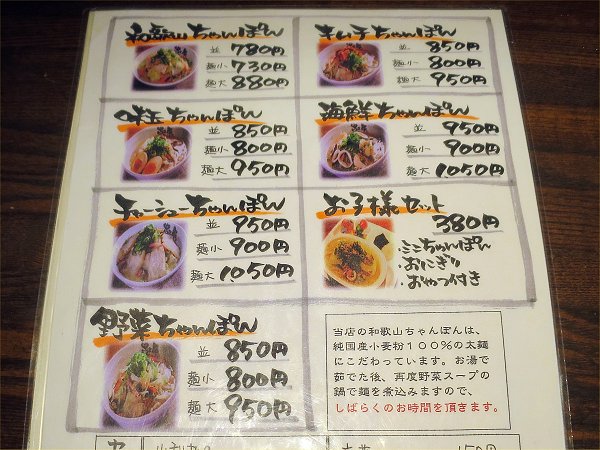 和歌山ちゃんぽん
並 780円
麺小 730円
麺大 880円
キムチちゃんぽん
並 850円
麺小 800円
麺大 950円
味玉ちゃんぽん
並 850円
麺小 800円
麺大 950円
海鮮ちゃんぽん
並 950円
麺小 900円
麺大 1050円
チャーシューちゃんぽん
並 950円
麺小 900円
麺大 1,050円
お子様セット
380円
・ミニちゃんぽん
・おにぎり
・おやつ付き
野菜ちゃんぽん
並 850円
麺小 800円
麺大 950円
当店の和歌山ちゃんぽんは、
純国産小麦粉100%の太麺
にこだわっています。お湯で
茹でた後、再度野菜スープの
鍋で麺を煮込みますので、
しばらくのお時間を頂きます。